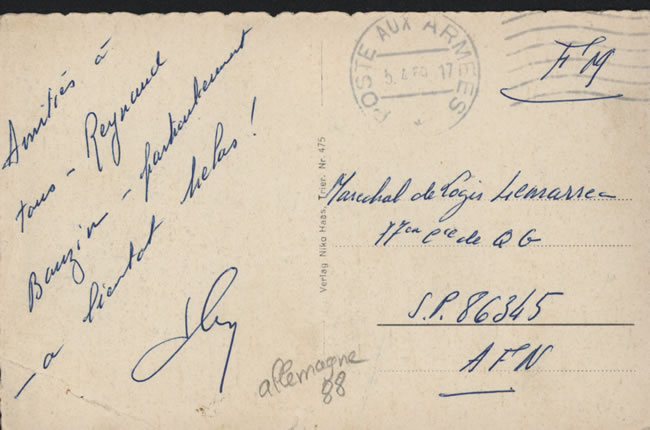 Amitiés à
tous - Reynaud
Bauzin - particulièrement
- a bientot helas !
POSTE AUX ARMEES
FM
Verlag Niko Haas, Trier, Nr. 475
Marechal de Logis Lemarrec
77em Cie de QG
S.P. 86345
AFN
allemagne
88